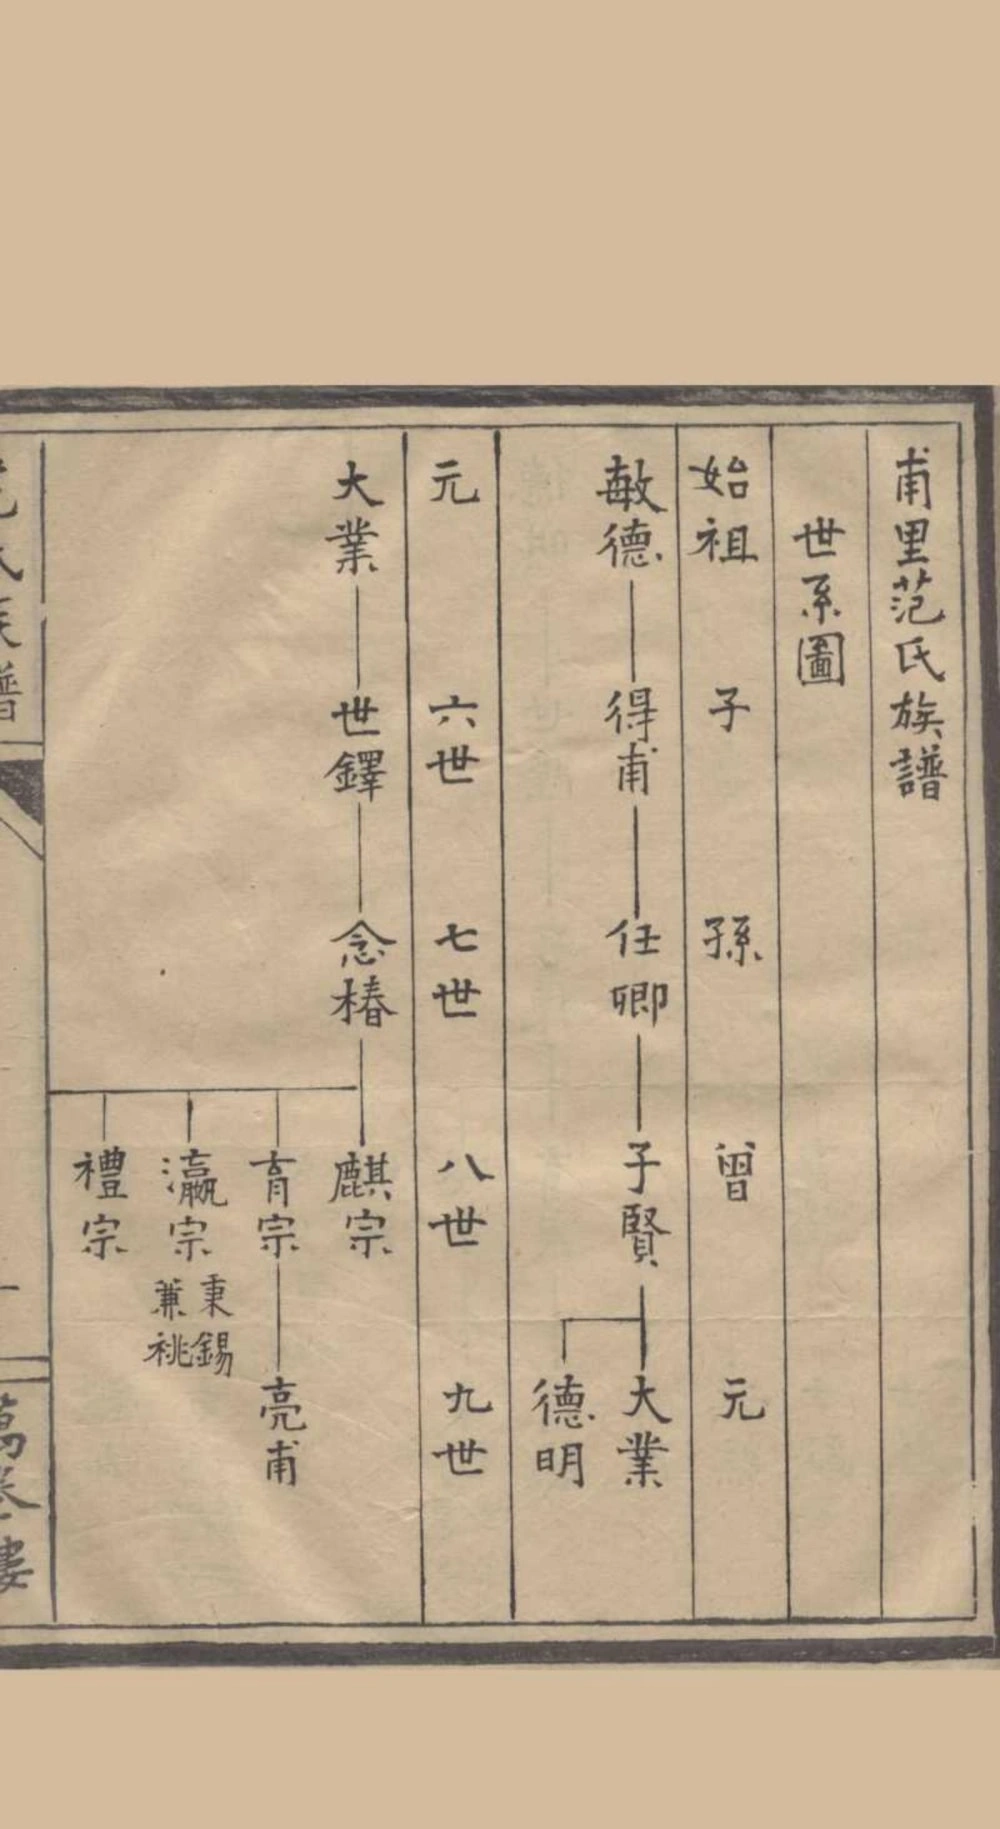 甫里范氏族譜
世系圖
始祖 子 孫 曾 元
敏德 得甫 任卿 子賢 大業
德明
元 六世 七世 八世 九世
大業 世鐸 念椿 麒宗
育宗 亮甫
瀛宗 秉錫兼祧
禮宗
氏族譜 萬卷樓